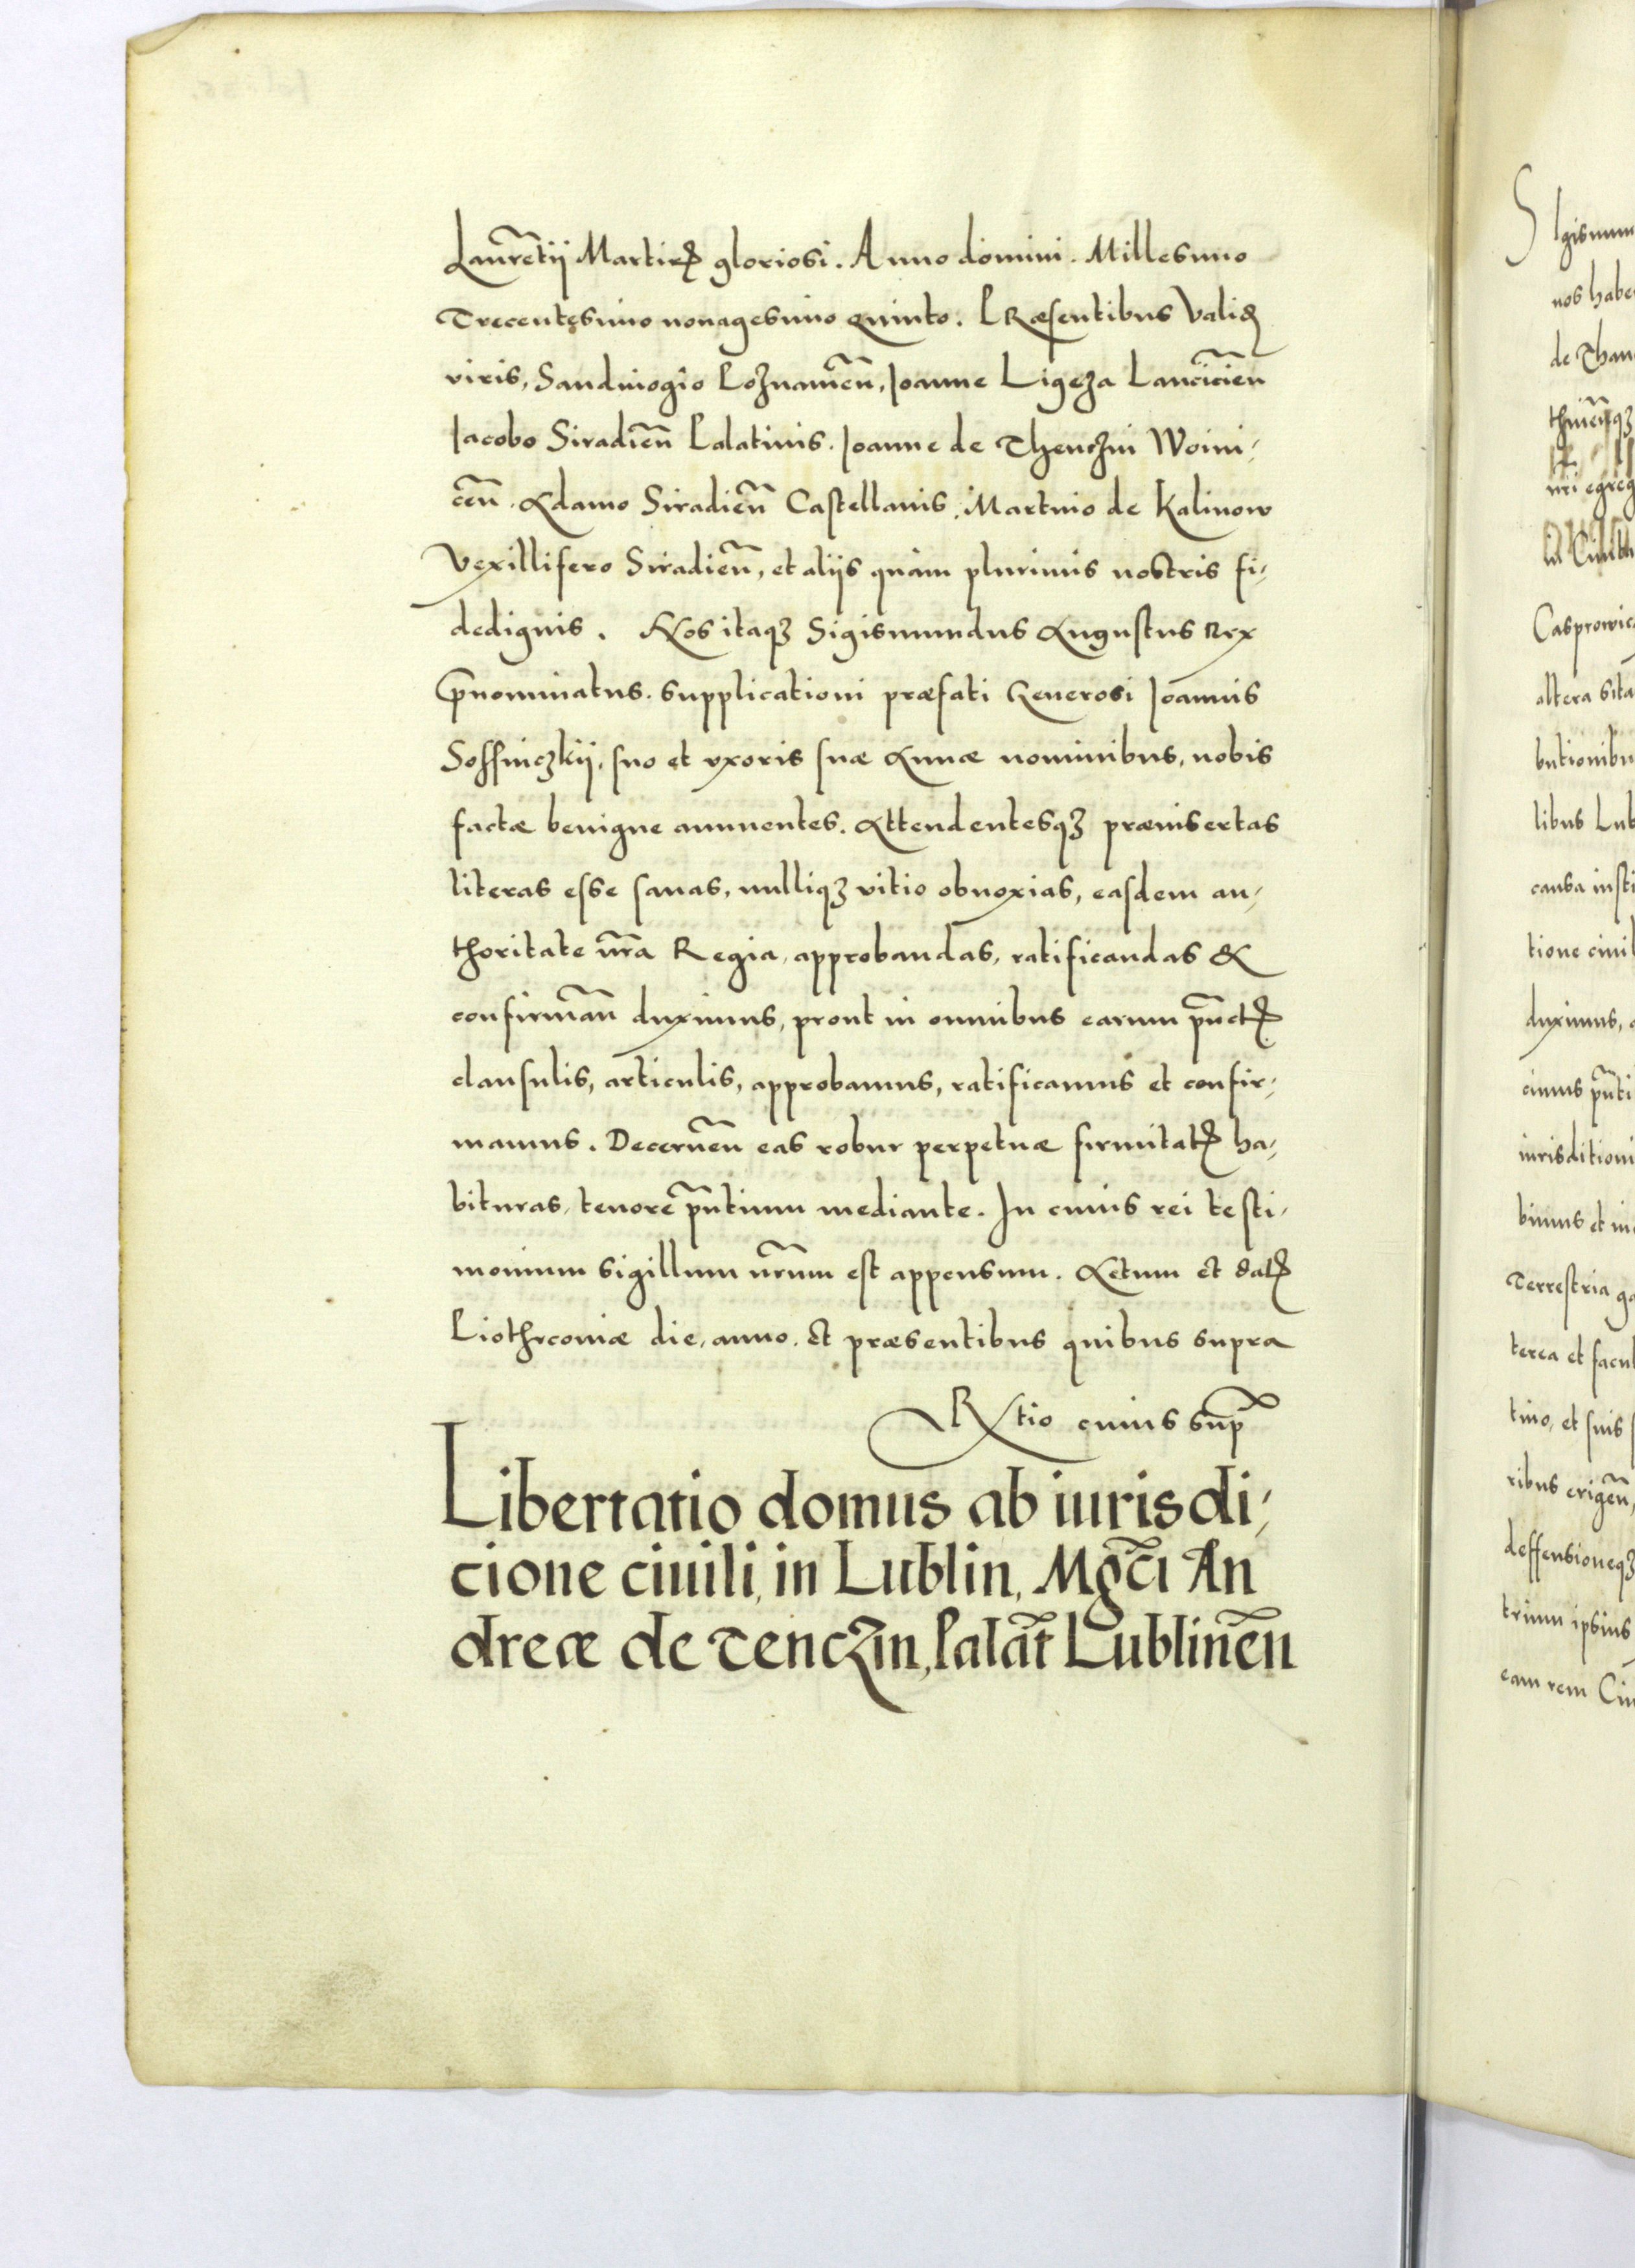 Laur̃etij Martirꝭ gloriosi. Anno domini. Millesimo
Trecentęsimo nonagesimo quinto. PRæsentibus Validꝭ
viris, Sandiuogio Poznanieñ, Joanne Ligęza Lanciciẽn
Jacobo Siradieñ Palatinis. Joanne de Thenczin Woini-
ceñ. Adamo Siradieñ Castellanis. Martino de Kalinow
Vexillifero Siradieñ, et aliis quàm plurimis nostris fi-
dedignis. Nos itaqꝫ Sigismundus Augustus Rex
Prænominatus. supplicationi præfati Generosi Joannis
suo et vxoris suæ Annæ nominibus, nobis
factæ benigne annuentes. Attendentesqꝫ præinsertas
literas esse sanas, nulliqꝫ vitio obnoxias, easdem au-
thoritate nr̃a Regia, approbandas, ratificandas &
confirmañ duximus, prout in omnibus earum punctꝭ
clausulis, articulis, approbamus, ratificamus et confir-
mamus. Decerneñ eas robur perpetuæ firmitatꝭ ha-
bituras, tenore pñtium mediante. In cuius rei testi-
monium sigillum nr̃um est appensum. Actum et datꝭ
Piothrcouiæ die, anno. et præsentibus quibus supra
Rtio cuius sup̃
Libertatio domus ab iurisdi-
cione ciuili, in Lublin, Mgc̃i An
dreæ de Tenczin, Palat̃ Lublineñ
nos habe
de Than
Casprowic
altera sita
butionibu
libus Lub
causa insti
tione ciuil
duximus,
cimus pñti
iurisditioni
bimus et in
Terrestria ga
terea et facul
tino, et suis
ribus erigeñ,
deffensioneqꝫ
trium ipsius
eam rem Ciu